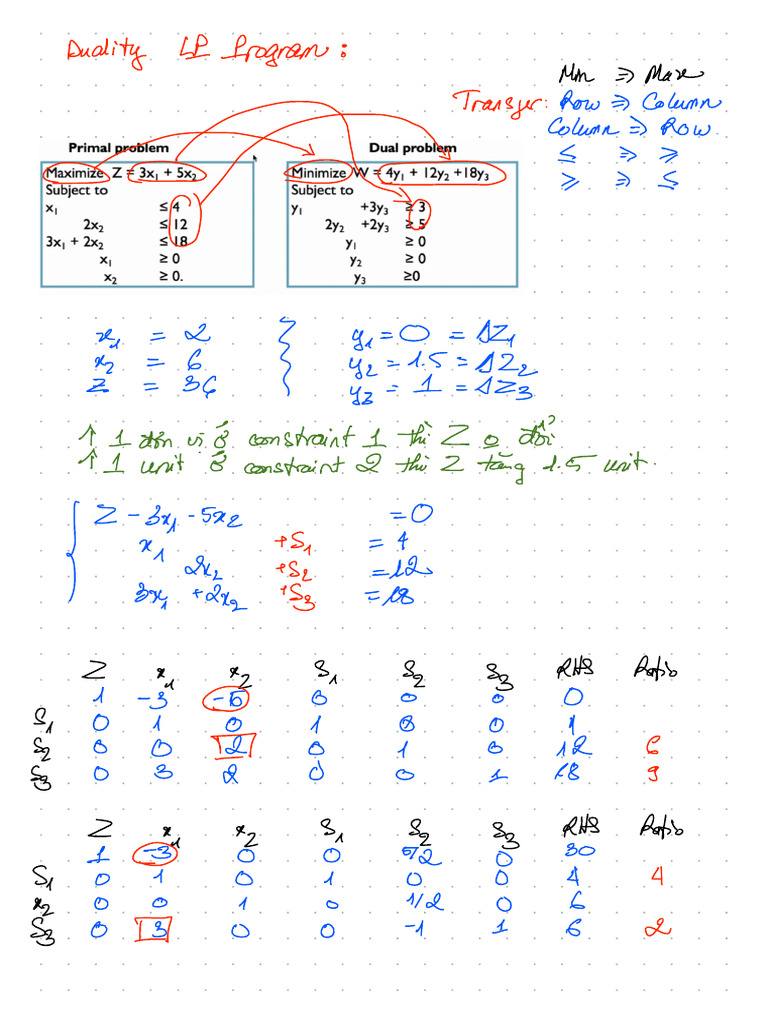 Duality LP Program :
Min ⇒ Max
Transfer: Row ⇒ Column
Column ⇒ Row
≤ ⇒ ≥
≥ ⇒ ≤
Primal problem
Maximize Z = 3x₁ + 5x₂
Subject to
x₁ ≤ 4
2x₂ ≤ 12
3x₁ + 2x₂ ≤ 18
x₁ ≥ 0
x₂ ≥ 0.
Dual problem
Minimize W = 4y₁ + 12y₂ +18y₃
Subject to
y₁ +3y₃ ≥ 3
2y₂ +2y₃ ≥ 5
y₁ ≥ 0
y₂ ≥ 0
y₃ ≥0
x₁ = 2
x₂ = 6
Z = 36
y₁ = 0 = ΔZ₁
y₂ = 1.5 = ΔZ₂
y₃ = 1 = ΔZ₃
↑ 1 đơn vị ở constraint 1 thì Z o đổi
↑ 1 unit ở constraint 2 thì Z tăng 1.5 unit.
Z - 3x₁ - 5x₂ = 0
x₁ +S₁ = 4
2x₂ +S₂ = 12
3x₁ + 2x₂ +S₃ = 18
Z x₁ x₂ S₁ S₂ S₃ RHS Ratio
1 -3 -5 0 0 0 0
S₁ 0 1 0 1 0 0 4
S₂ 0 0 2 0 1 0 12 6
S₃ 0 3 2 0 0 1 18 9
Z x₁ x₂ S₁ S₂ S₃ RHS Ratio
1 -3 0 0 5/2 0 30
S₁ 0 1 0 1 0 0 4 4
x₂ 0 0 1 0 1/2 0 6
S₃ 0 3 0 0 -1 1 6 2